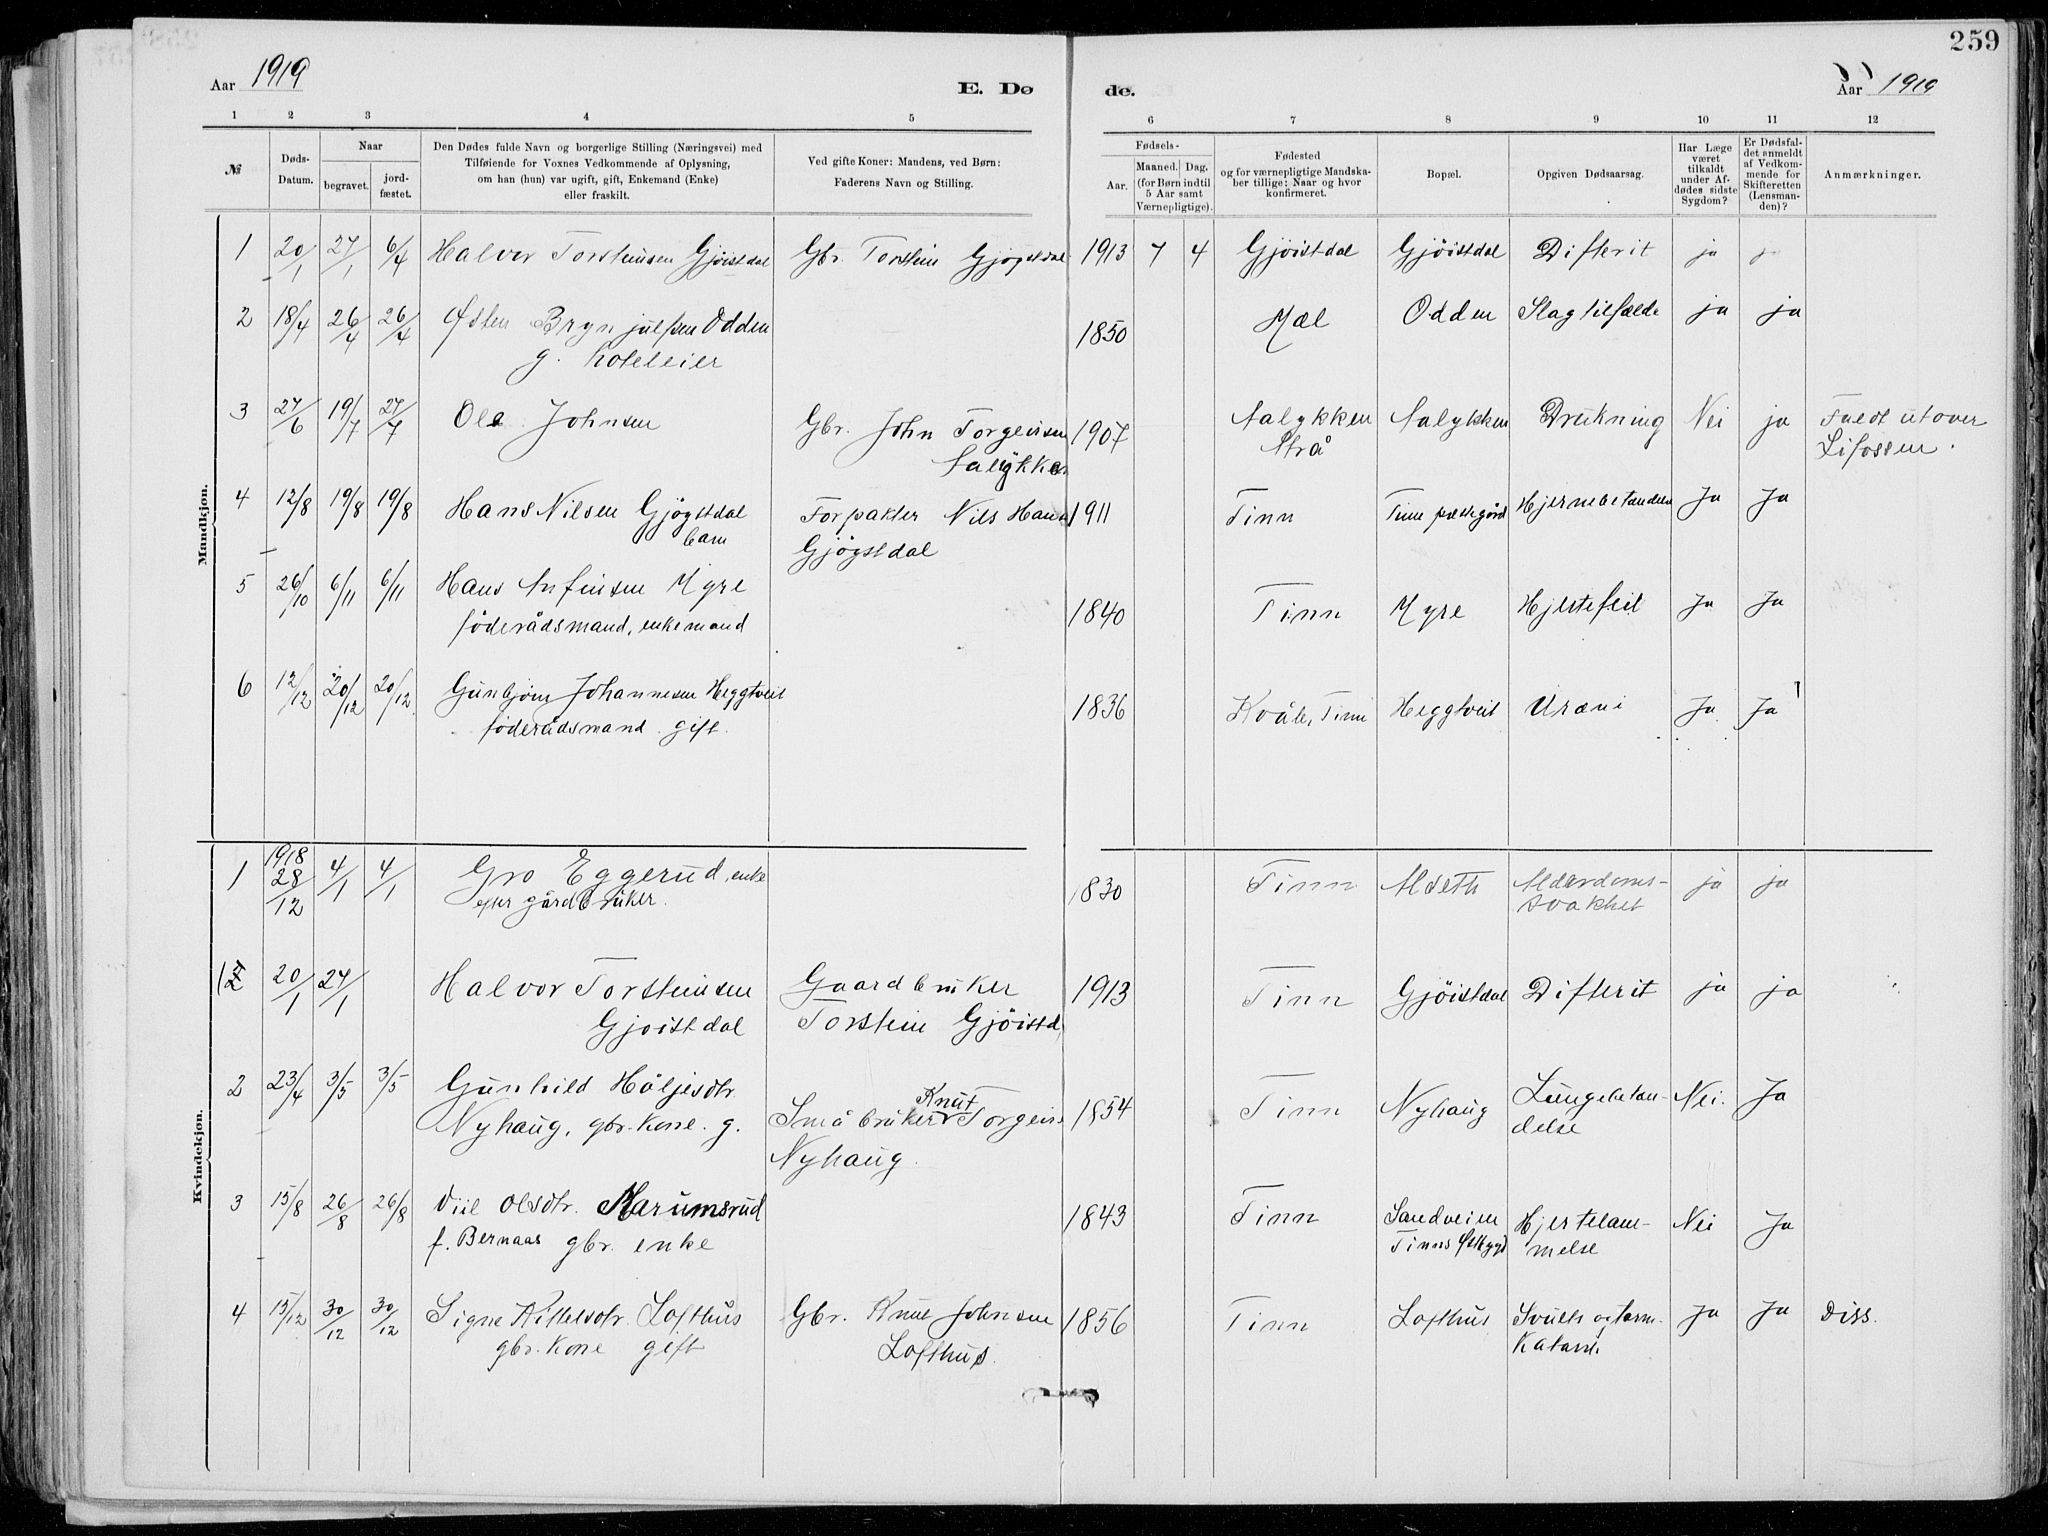 259
Aar 1919
E. Dø
de.
Aar 1919
1 2 3 4 5 6 7 8 9 10 11 12
№
Døds-
Datum.
Naar
begravet.
jord-
fæstet.
Den Dødes fulde Navn og borgerlige Stilling (Næringsvei) med
Tilføiende for Voxnes Vedkommende af Oplysning,
om han (hun) var ugift, gift, Enkemand (Enke)
eller fraskilt.
Ved gifte Koner: Mandens, ved Børn:
Faderens Navn og Stilling.
Fødsels-
Aar.
Maaned. Dag.
(for Børn indtil
5 Aar samt
Værnepligtige).
Fødested
og for værnepligtige Mandska-
ber tillige: Naar og hvor
konfirmeret.
Bopæl.
Opgiven Dødsaarsag.
Har Læge
været
tilkaldt
under Af-
dødes sidste
Sygdom?
Er Dødsfal-
det anmeldt
af Vedkom-
mende for
Skifteretten
(Lensman-
den)?
Anmærkninger.
Mandkjøn.
1 20/1 27/1 6/4 Halvor Torsteinsen Gjöistdal Gbr. Torstein Gjögstdal 1913 7 4 Gjöistdal Gjöistdal Difterit ja ja
2 18/4 26/4 26/4 Østen Brynjulfsen Odden 1850 Mæl Odden Slagtilfælde ja ja
g. hoteleier
3 27/6 19/7 27/7 Ole Johnsen Gbr. John Torgeirsen 1907 Saløkken Drukning Nei ja Faldt utover
Strå Lifossen.
4 12/8 19/8 19/8 Hans Nilsen Gjögstdal Forpakter Nils Hans 1911 Tinn Tinn prestegård Ja Ja
barn Gjögstdal
5 26/10 6/11 6/11 Hans Anfinsen Myre 1840 Tinn Myre Hjertefeil Ja Ja
föderådsmand, enkemand
6 12/12 20/12 20/12 Gunbjörn Johannesen Heggtveit 1836 Kvåle, Tinn Heggtveit Uræmi Ja Ja
föderådsmand gift.
Kvindekjøn.
1918
1 28/12 4/1 4/1 Gro Eggerud, enke 1830 Tinn Alderdoms- ja ja
efter gårdbruker. svakhet
2 20/1 27/1 Halvor Torsteinsen Gaardbruker 1913 Tinn Gjöistdal Difterit ja ja
Gjöistdal Torstein Gjöistd
2 23/4 3/5 3/5 Gunhild Höljesdtr. Småbruker Knut Torgeirs 1854 Tinn Nyhaug Lungebetæn- Nei. Ja
Nyhaug, gbr. kone. g. Nyhaug. delse
3 15/8 26/8 26/8 Viil Olsdtr. Marumsrud 1843 Tinn Sandveien Hjertelam- Nei Ja
f. Bernaas gbr. enke Tinns Østbygd melse
4 15/12 30/12 30/12 Signe Kittelsdtr. Lofthus Gbr. Knut Johnsen 1856 Tinn Lofthus Ja Ja Diss.
gbr. kone gift Lofthus.